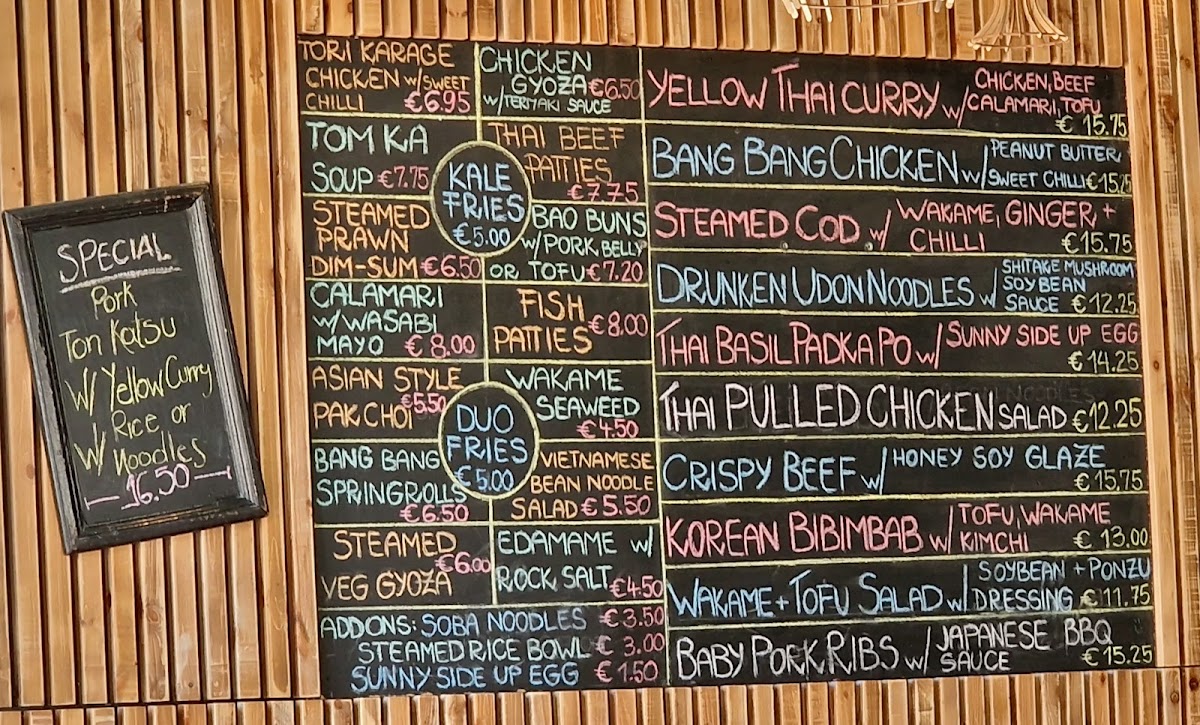 SPECIAL
Pork
Ton Katsu
W/ Yellow Curry
Rice or
W/ Noodles
16.50
TORI KARAGE
CHICKEN W/SWEET
CHILLI €6.95
CHICKEN
GYOZA €6.50
W/TERIYAKI SAUCE
TOM KA
SOUP €7.75
THAI BEEF
PATTIES
€7.75
KALE
FRIES
€5.00
STEAMED
PRAWN
DIM-SUM €6.50
BAO BUNS
W/PORK BELLY
OR TOFU €7.20
CALAMARI
W/WASABI
MAYO €8.00
FISH
PATTIES €8.00
ASIAN STYLE
PAK CHOI €5.50
WAKAME
SEAWEED
€4.50
DUO
FRIES
€5.00
BANG BANG
SPRINGROLLS
€6.50
VIETNAMESE
BEAN NOODLE
SALAD €5.50
STEAMED
€6.00
VEG GYOZA
EDAMAME W/
ROCK SALT €4.50
ADDONS: SOBA NOODLES €3.50
STEAMED RICE BOWL €3.00
SUNNY SIDE UP EGG €1.50
YELLOW THAI CURRY W/ CHICKEN, BEEF
CALAMARI, TOFU
€15.75
BANG BANG CHICKEN W/ PEANUT BUTTER,
SWEET CHILLI €15.25
STEAMED COD W/ WAKAME, GINGER, +
CHILLI €15.75
DRUNKEN UDON NOODLES W/ SHITAKE MUSHROOM
SOY BEAN
SAUCE €12.25
THAI BASIL PADKA PO W/ SUNNY SIDE UP EGG
€14.25
THAI PULLED CHICKEN SALAD €12.25
CRISPY BEEF W/ HONEY SOY GLAZE
€15.75
KOREAN BIBIMBAB W/ TOFU, WAKAME
KIMCHI €13.00
WAKAME + TOFU SALAD W/ SOYBEAN + PONZU
DRESSING €11.75
BABY PORK RIBS W/ JAPANESE BBQ
SAUCE €15.25